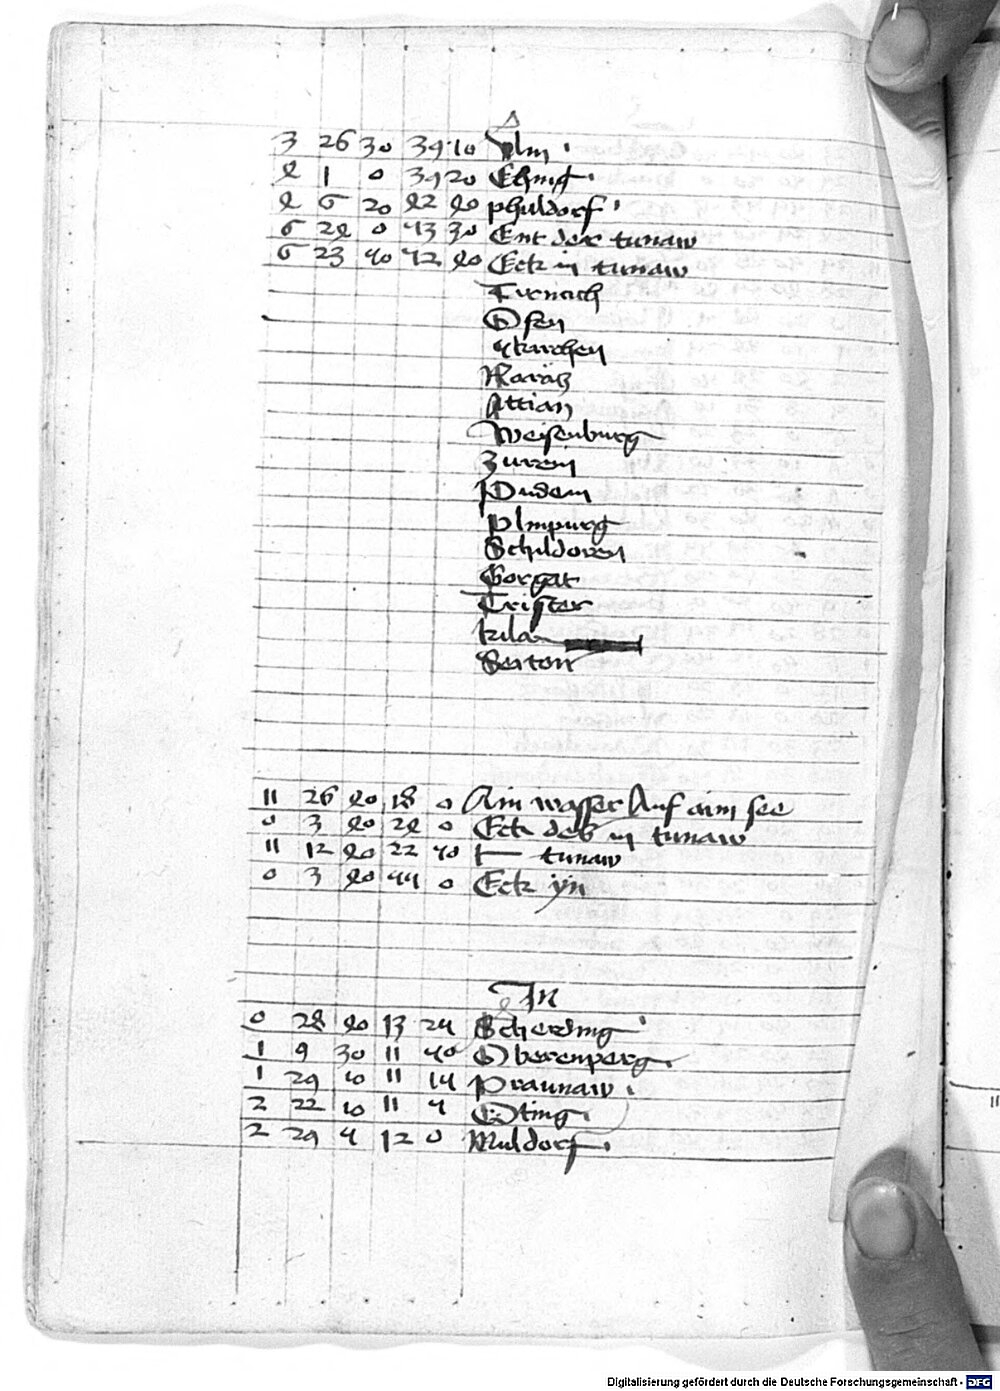 3 26 30 39 10 Vlm
2 1 0 39 20 Ching
2 6 20 22 20 phuldorf
6 22 0 43 30 Ent der tunaw
6 23 40 42 20 Eck in tunaw
Turnach
Ofen
kirchen
Attian
Weisenburg
Zurein
Pudem
plmpurg
Schildoren
Gorgat
Trister
kila
Serton
11 26 20 18 0 Ain wasser Auf aim see
0 3 20 22 0 Eck des in tunaw
11 12 20 22 40 tunaw
0 3 20 44 0 Eck yn
In
0 28 20 13 24 Scherding
1 9 30 11 40 Oberenperg
1 29 10 11 14 Praunaw
2 22 10 11 4 Oting
2 29 4 12 0 Muldorf
11
Digitalisierung gefördert durch die Deutsche Forschungsgemeinschaft - DFG